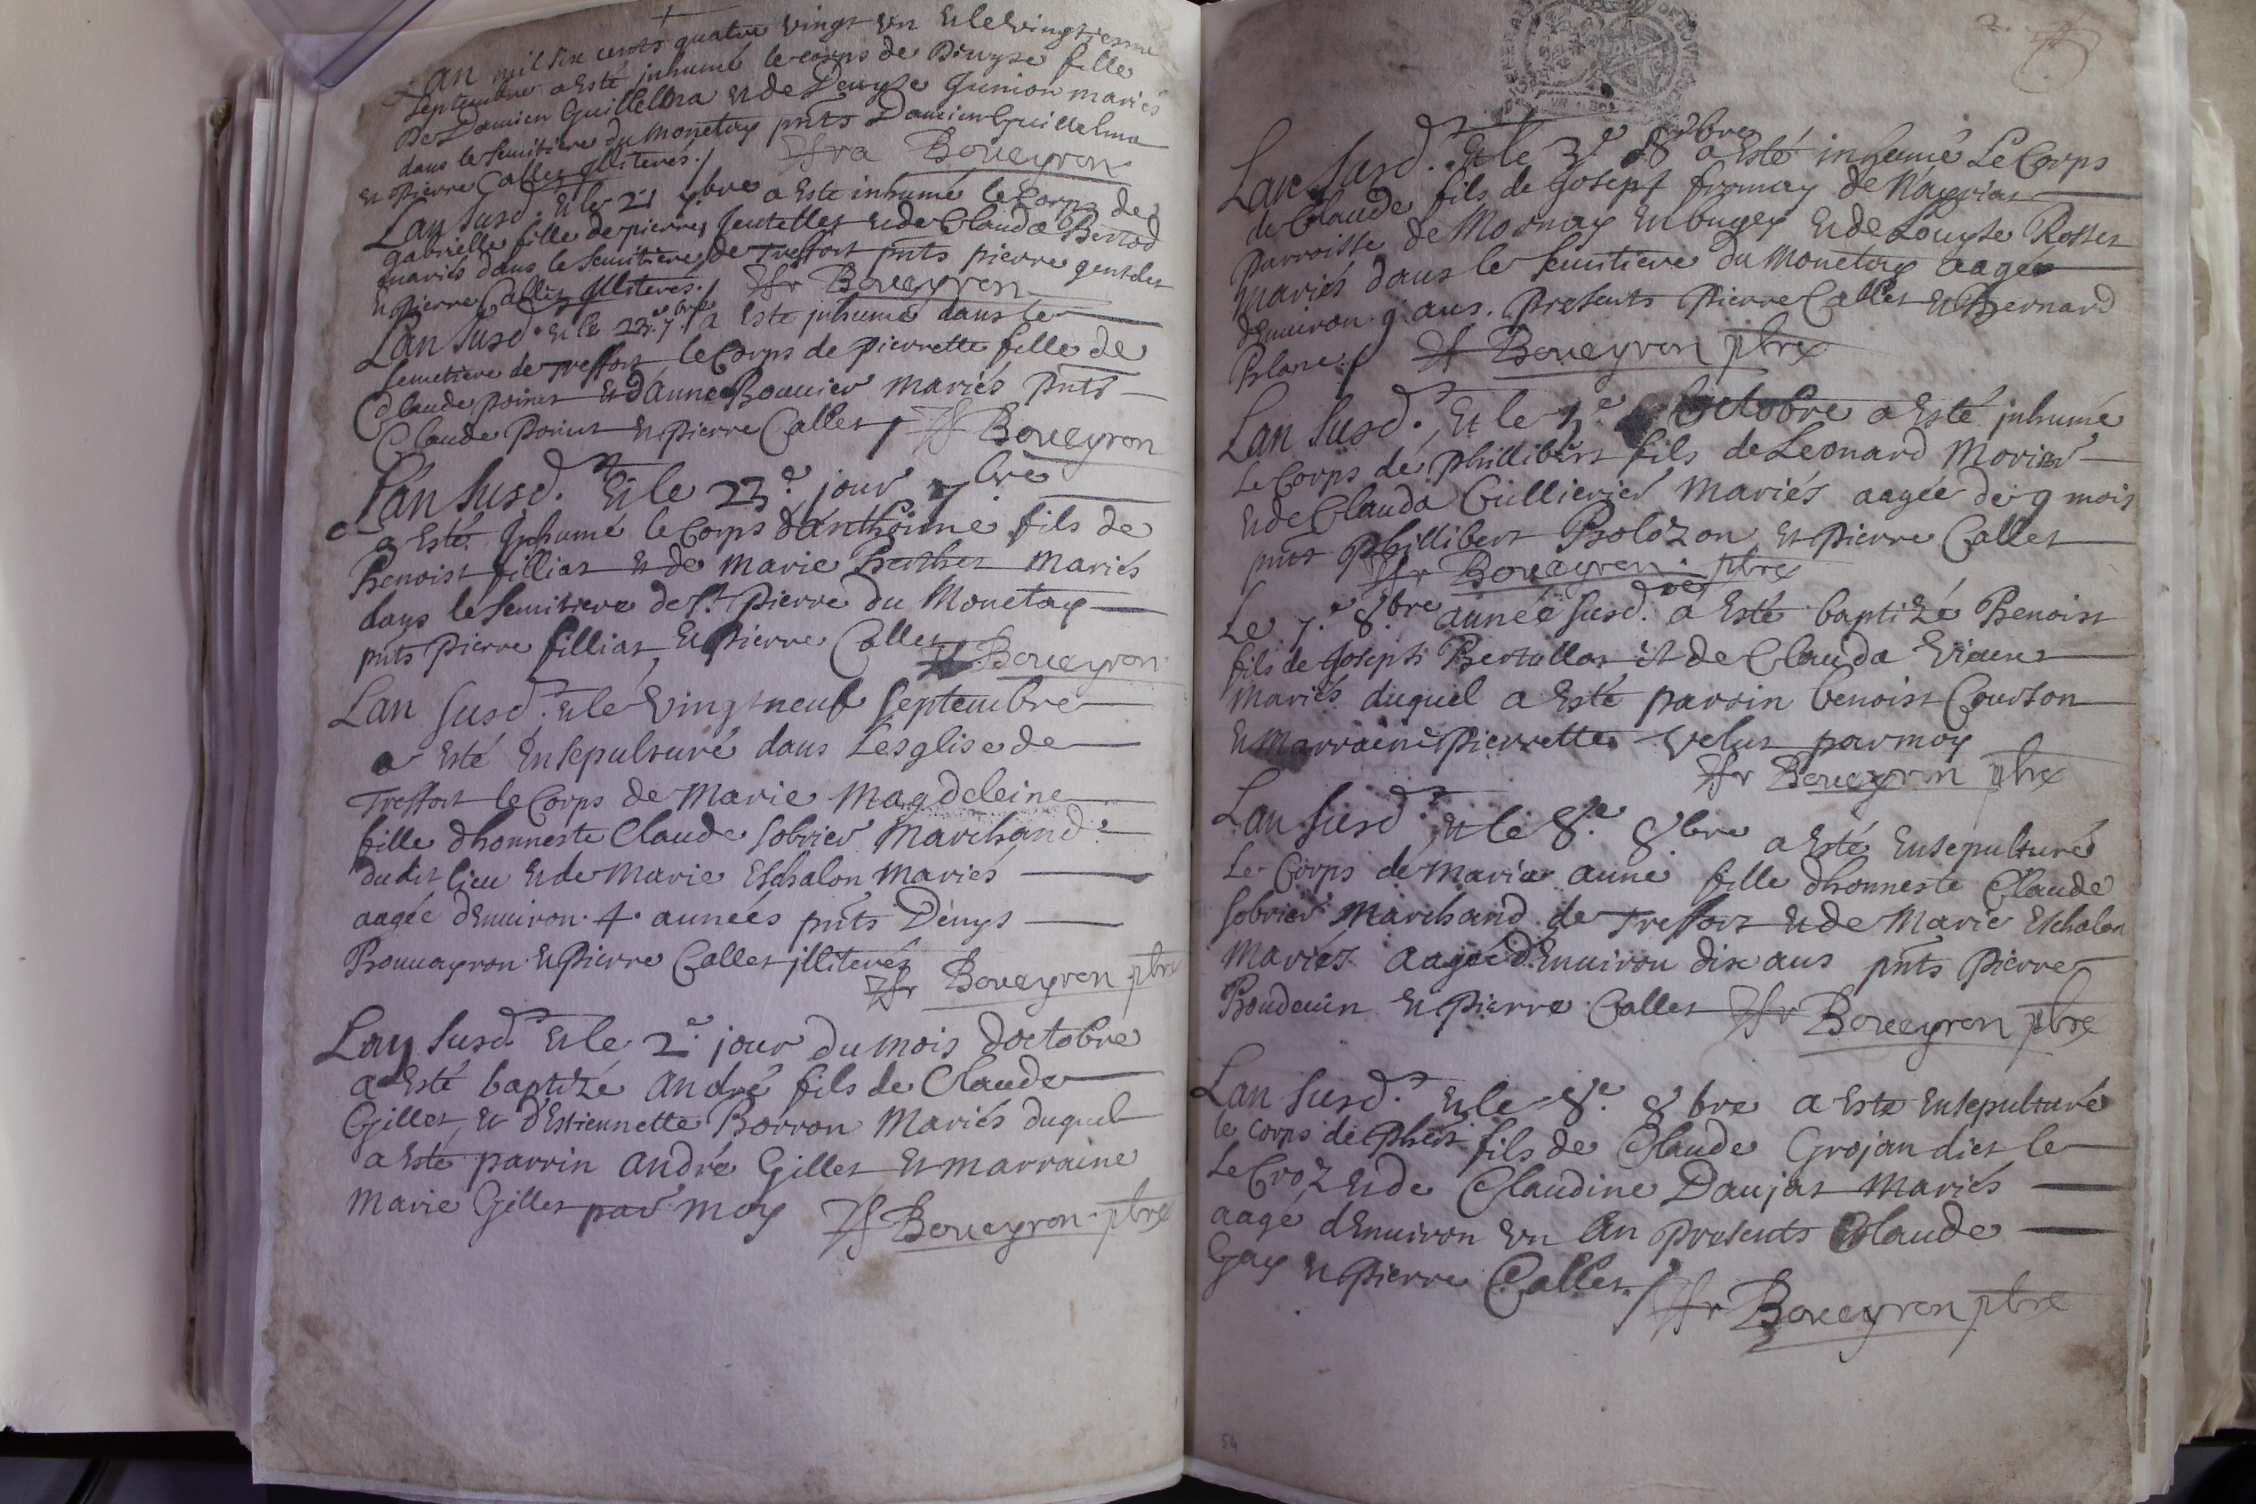 Lan mil six cents quatre vingt un Et le vingtiesme
septembre a esté inhumé le corps de Denyse fille
De Damien Guillelma et de Denyse Junion mariés
dans le semitiere du Monetay pnts Damien Guillelma
et Pierre Callet illiterés./ Boueyron
Lan susd. Et le 21 7bre a esté inhumé le corps de
gabrielle fille de pierre Jentellet et de Clauda Bertod
mariés dans le semitiere de Treffort pnts pierre gentelet
et pierre Callet illiterés./ Boueyron
Lan susd. et le 23e 7bre a esté inhumé dans le
semetiere de Treffort le Corps de pierrette fille de
Claude poinct et d'anne Bouuier mariés pnts
Claude Poinct et pierre Callet / Boueyron
Lan susd. Et le 23e jour 7bre
a Esté Inhumé le Corps d'anthoine fils de
Benoist filliat et de Marie Berthet Mariés
dans le semitiere de St Pierre du Monetay
pnts Pierre filliat, Et Pierre Callet Boueyron
Lan susd. et le vingt neuf septembre
a Esté Ensepulturé dans L'esglise de
Treffort le Corps de Marie Magdeleine
fille dhonneste Claude sobrier Marchand
dudit lieu et de Marie Eschalon Mariés
aagée d'Enuiron 4 années pnts Denys
Bouuayron et Pierre Callet illiterés
Boueyron pbre
Lan susd. Et le 2e jour du mois doctobre
a Esté baptizé André fils de Claude
Gillet et d'Estiennette Borron Mariés duquel
a Esté parrin André Gillet Et marraine
Marie Gillet par moy Boueyron pbre
Lan susd. Et le 3e 8bre a Esté inhumé Le Corps
de Claude fils de Joseph fromay de Nayriat
parroisse de Mornay en bugey et de Louyse Rosset
mariés dans le semitiere du Monetay aagée
d'Enuiron 9 ans. Presents Pierre Callet et Bernard
Blanc./ Boueyron pbre
Lan susd. Et le octobre a Esté inhumé
Le Corps de phillibert fils de Leonard Morier
et de Clauda Cullierier Mariés aagée de 9 mois
pnts Phillibert Bolozon et Pierre Callet
Boueyron pbre
Le 7e 8bre année susd. a Esté baptizé Benoist
fils de Joseph Bertallot et de Clauda Vienet
Mariés duquel a Esté parrin benoist Courton
et Marraine Pierrette Velut par moy
Boueyron pbre
Lan susd. et le 8e 8bre a Esté Ensepulturé
Le Corps de Marie anne fille dhonneste Claude
sobrier Marchand de Treffort et de Marie Eschalon
Mariés aagée d'Enuiron dix ans pnts Pierre
Boudeuin et Pierre Callet Boueyron pbre
Lan susd. et le 8e 8bre a Esté Ensepulturé
le corps de fils de Claude Grojan dict le
Le Croz et de Claudine Daujat Mariés
aagé d'Enuiron un An Presents Claude
Gay et Pierre Callet./
Boueyron pbre
54